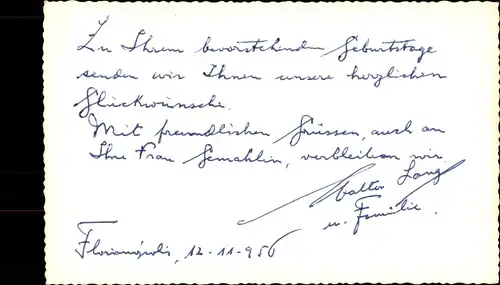 Zu Ihrem bevorstehenden Geburtstage
senden wir Ihnen unsere herzlichen
Glückwünsche.
Mit freundlichen Grüssen, auch an
Ihre Frau Gemahlin, verbleiben wir
Walter Lang
u. Familie.
Florianópolis, 12-11-956